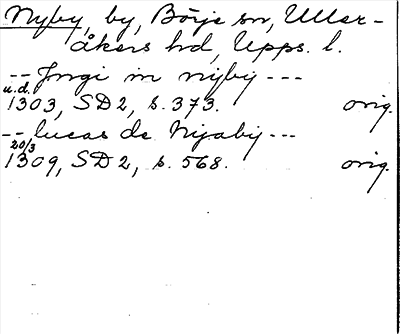 Nyby, by, Börje sn, Uller-
åkers hd, Upps. l.
-- Jngi in nyby ---
u.d.
1303, SD 2, s. 373. orig.
-- lucas de Nyaby ---
20/3
1309, SD 2, s. 568. orig.